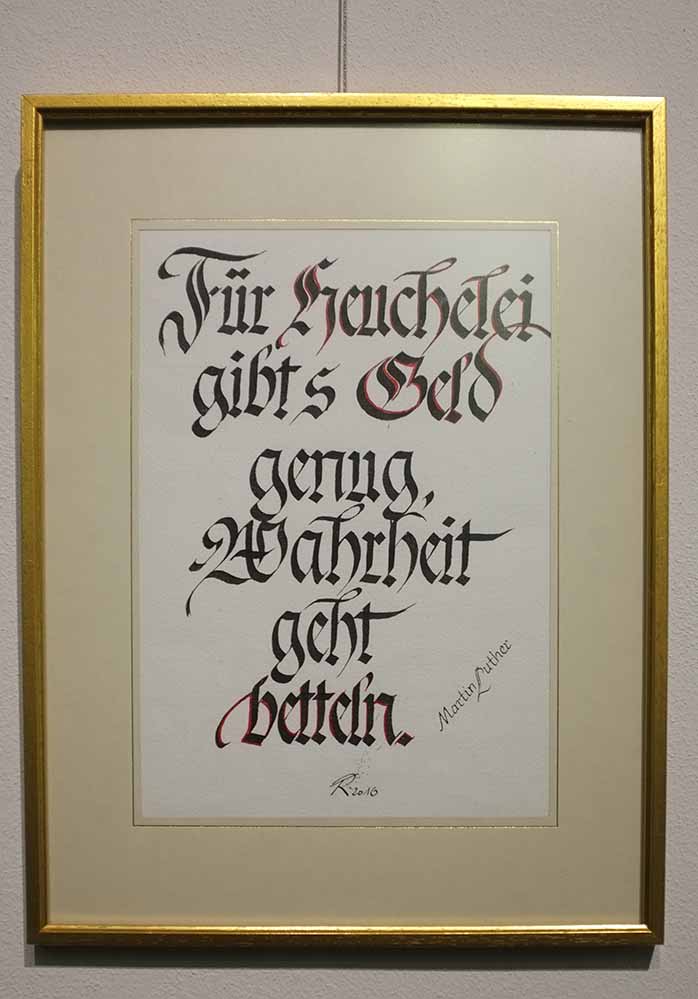 Für Heuchelei
gibt s Geld
genug,
Wahrheit
geht
betteln.
Martin Luther
R 2016